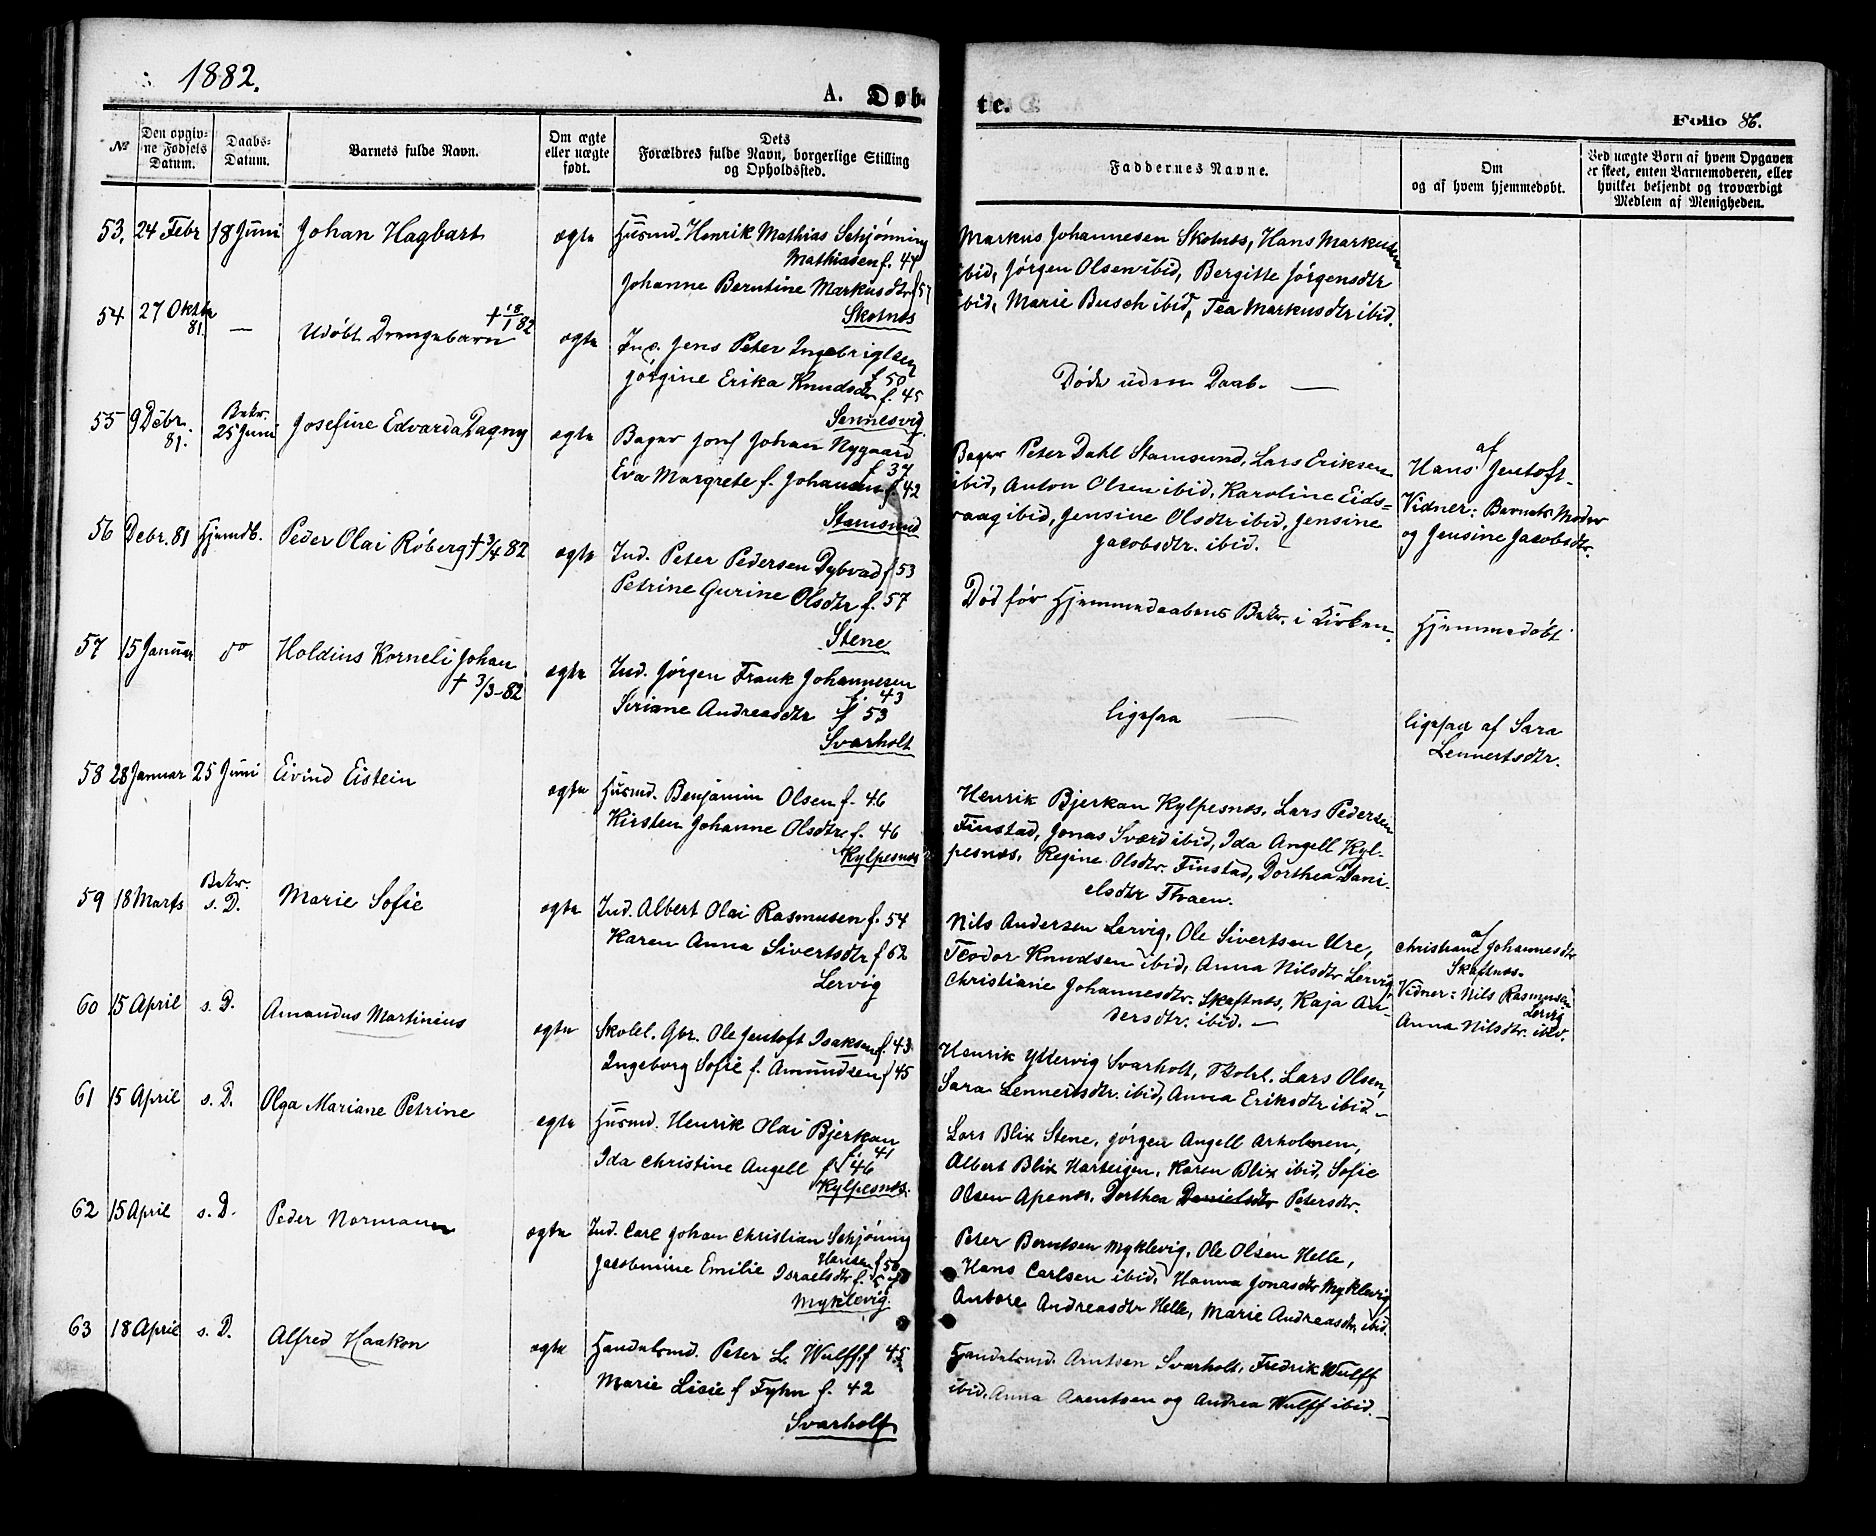 1882.
A. Døb-
te.
Folio 86.
№
Den opgiv-
ne Fødsels
Datum.
Daabs-
Datum.
Barnets fulde Navn.
Om ægte
eller uægte
født.
Dets
Forældres fulde Navn, borgerlige Stilling
og Opholdssted.
Faddernes Navne.
Om
og af hvem hjemmedøbt.
Ved uægte Børn af hvem Opgaven
er skeet, enten Barnemoderen, eller
hvilket bekjendt og troværdigt
Medlem af Menigheden.
53, 24 Febr 18 Juni Johan Hagbart ægte
Husmd. Henrik Mathias Schjønning
Mathiasen f. 44
Johanne Berntine Markusdtr f 57
Skotnes
Markus Johannesen Skotnes, Hans Markusen
ibid, Jørgen Olsen ibid, Bergitte Jørgensdtr
ibid, Marie Busch ibid, Tea Markusdtr ibid.
54 27 Oktbr
81. — Udøbt Drengebarn † 18/1 82 ægte
Ins. Jens Peter Ingebrigtsen
f 50
Jørgine Erika Knudsdtr f. 45
Sennesvig
Døde uden Daab. —
55 9 Debr.
81. Bekr.
25 Juni Josefine Edvarda Dagny ægte
Bager Josef Johan Nygaard
f 37
Eva Margrete f. Johansen f. 42
Stamsund
Bager Peter Dahl Stamsund, Lars Eriksen
ibid, Anton Olsen ibid, Karoline Eids-
vaag ibid, Jensine Olsdtr ibid, Jensine
Jacobsdtr. ibid. —
af
Hans Jentoft-
Vidner: Barnets Moder
og Jensine Jacobsdtr.
56 Debr. 81 Hjemdb. Peder Olai Røberg † 3/4 82 ægte
Ind. Peter Pedersen Dybvad f 53
Petrine Gurine Olsdtr f. 57
Stene
Død før Hjemmedaabens Bekr. i Kirken.
Hjemmedøbt
57 15 Januar do Holdius Korneli Johan
† 3/3-82 ægte
Ind. Jørgen Frank Johannesen
f. 43
Siriane Andreasdtr f 53
Svarholt
ligesaa —
ligesaa af Sara
Lennertsdtr.
58 28 Januar 25 Juni Eivind Eistein ægte
Husmd. Benjamin Olsen f. 46
Kirsten Johanne Olsdtr f. 46
Kylpesnes
Henrik Bjerkan Kylpesnes, Lars Pedersen
Finstad, Jonas Sværd ibid, Ida Angell Kyl-
pesnes, Regine Olsdtr. Finstad, Dorthea Dani-
elsdtr Traen.
59 18 Marts Bekr.
s. D. Marie Sofie ægte
Ind. Albert Olai Rasmusen f. 54
Karen Anna Sivertsdtr f 62
Lervig
Nils Andersen Lervig, Ole Sivertsen Ure,
Teodor Knudsen ibid, Anna Nilsdtr Lervig,
Christiane Johannesdtr. Skaftnes, Kaja An-
dersdtr. ibid. —
af
Christiane Johannesdtr
Skaftnes.
Vidner: Nils Rasmusen
Lervig
Anna Nilsdtr. ibid.
60 15 April s. D. Amandus Martinius ægte
Skolel. Gbr. Ole Jentoft Isaksen f. 43
Ingeborg Sofie f. Amundsen f 45
Henrik Yttervig Svarholt, Skolel. Lars Olsen,
Sara Lennertsdtr. ibid, Anna Eriksdtr ibid—
61 15 April s. D. Olga Mariane Petrine ægte
Husmd. Henrik Olai Bjerkan
f. 41
Ida Christine Angell f 46
Kylpesnes.
Lars Blix Stene, Jørgen Angell Arholmen,
Albert Blix Harteigen, Karen Blix ibid, Sofie
Olsen Apenes, Dorthea Danielsdtr Petersdtr.
62 15 April s. D. Peder Normann ægte
Ind. Carl Johan Christian Schjøning
Hansen f 50
Jacobmine Emilie Israelsdtr f.
Myklevig
Peter Berntsen Myklevig, Ole Olsen Helle,
Hans Carlsen ibid, Hanna Jonasdtr Myklevig,
Antore Andreasdtr Helle, Marie Andreasdtr. ibid.
63 18 April s. D. Alfred Haakon ægte
Handelsmd. Peter L. Wulff f 45
Marie Lisie f Fyhn f. 42
Svarholt
Handelsmd. Arntsen Svarholt, Fredrik Wulff
ibid, Anna Arentsen og Andrea Wulff ibid. —